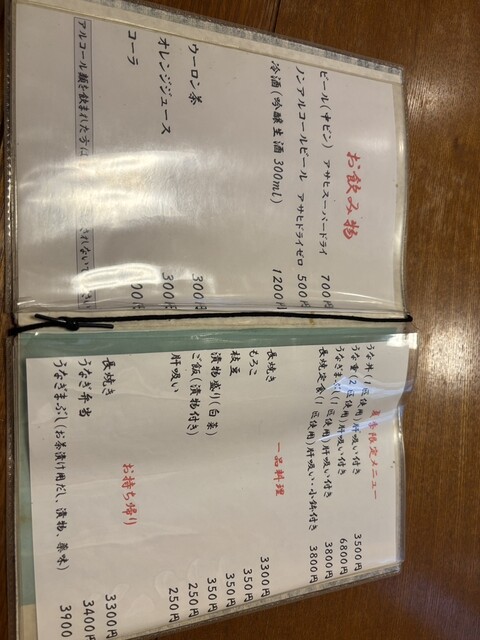 お飲み物
ビール(中ビン) アサヒスーパードライ 700円
ノンアルコールビール アサヒドライゼロ 500円
冷酒(吟醸生酒 300ml) 1200円
ウーロン茶 300円
オレンジジュース 300円
コーラ 00円
アルコール類を飲まれた方は されないで
限定メニュー
うな丼(1匹使用)肝吸い付き 3500円
うな重(2匹使用)肝吸い付き 6800円
うなぎまぶし(1匹使用)肝吸い付き 3800円
長焼定食(1匹使用)肝吸い・小鉢付き 3800円
一品料理
長焼き 3300円
もろこ 350円
枝豆 350円
漬物盛り(白菜) 350円
ご飯(漬物付き) 250円
肝吸い 250円
お持ち帰り
長焼き 3300円
うなぎ弁当 3400円
うなぎまぶし(お茶漬け用だし、漬物、薬味) 3900